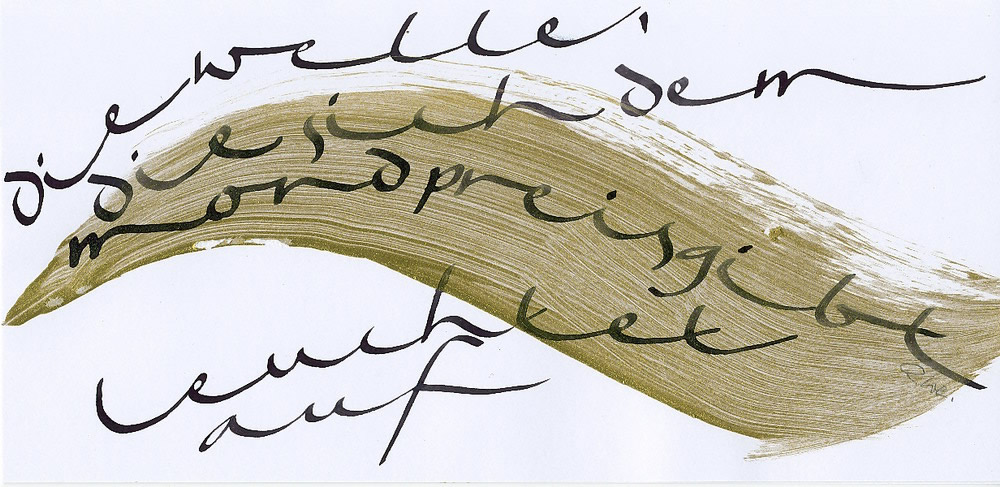 die welle,
die sich dem
mond preisgibt
leuchtet
auf